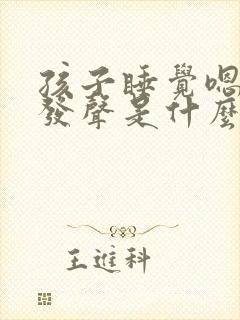 孩子睡覺嗯
發聲是什麼
王進科